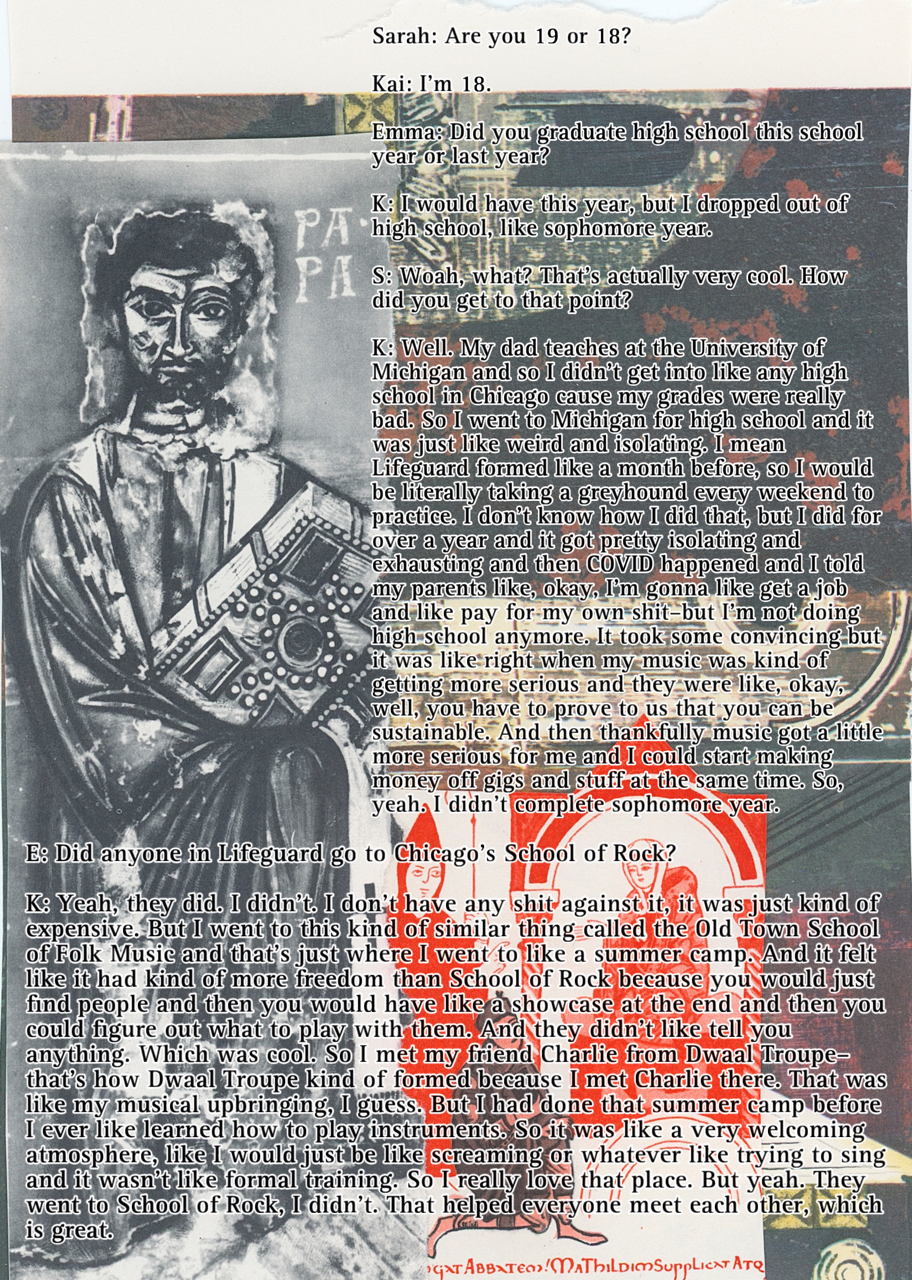 Sarah: Are you 19 or 18?
Kai: I'm 18.
Emma: Did you graduate high school this school
year or last year?
K: I would have this year, but I dropped out of
high school, like sophomore year.
S: Woah, what? That's actually very cool. How
did you get to that point?
K: Well. My dad teaches at the University of
Michigan and so I didn't get into like any high
school in Chicago cause my grades were really
bad. So I went to Michigan for high school and it
was just like weird and isolating. I mean
Lifeguard formed like a month before, so I would
be literally taking a greyhound every weekend to
practice. I don't know how I did that, but I did for
over a year and it got pretty isolating and
exhausting and then COVID happened and I told
my parents like, okay, I'm gonna like get a job
and like pay for my own shit–but I'm not doing
high school anymore. It took some convincing but
it was like right when my music was kind of
getting more serious and they were like, okay,
well, you have to prove to us that you can be
sustainable. And then thankfully music got a little
more serious for me and I could start making
money off gigs and stuff at the same time. So,
yeah. I didn't complete sophomore year.
E: Did anyone in Lifeguard go to Chicago's School of Rock?
K: Yeah, they did. I didn't. I don't have any shit against it, it was just kind of
expensive. But I went to this kind of similar thing called the Old Town School
of Folk Music and that's just where I went to like a summer camp. And it felt
like it had kind of more freedom than School of Rock because you would just
find people and then you would have like a showcase at the end and then you
could figure out what to play with them. And they didn't like tell you
anything. Which was cool. So I met my friend Charlie from Dwaal Troupe–
that's how Dwaal Troupe kind of formed because I met Charlie there. That was
like my musical upbringing, I guess. But I had done that summer camp before
I ever like learned how to play instruments. So it was like a very welcoming
atmosphere, like I would just be like screaming or whatever like trying to sing
and it wasn't like formal training. So I really love that place. But yeah. They
went to School of Rock, I didn't. That helped everyone meet each other, which
is great.
PA·
PA
ABBATEM! MAThILDIM SuppLICAT ATQ